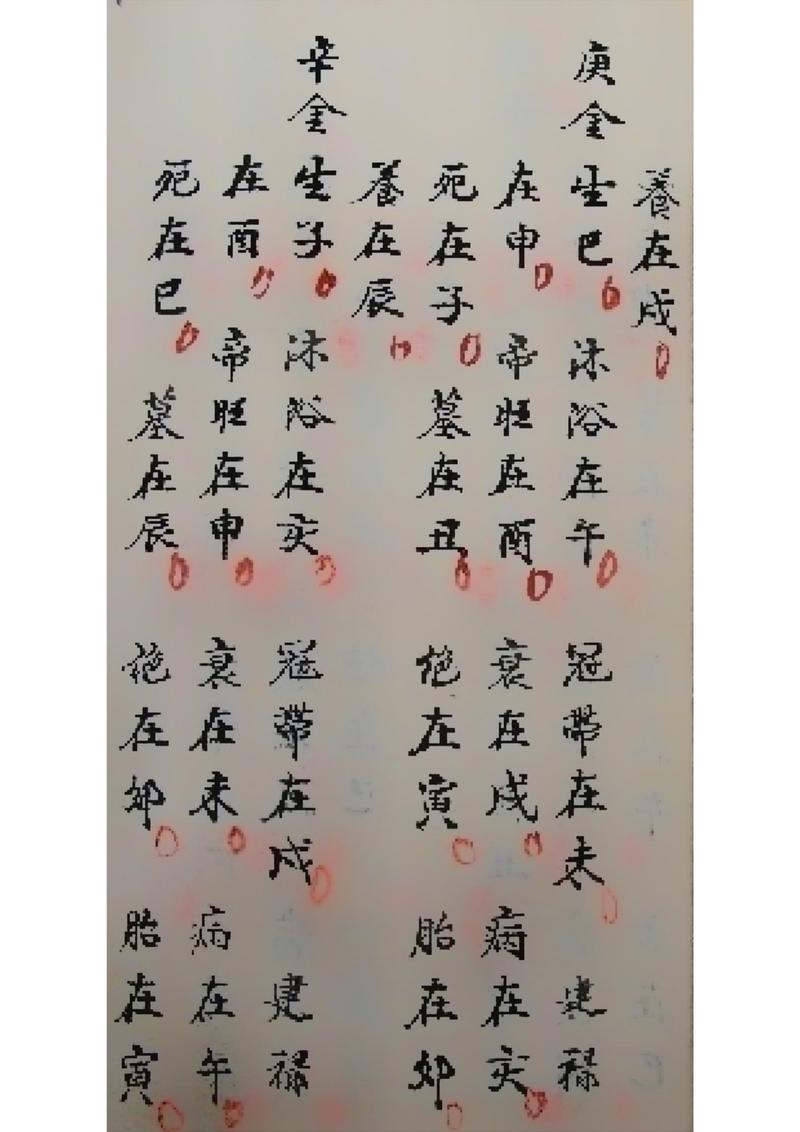 養在戌
庚金生巳 沐浴在午 冠帶在未 建禄
在申 帝旺在酉 衰在戌 病在亥
死在子 墓在丑 绝在寅 胎在卯
養在辰
辛金生子 沐浴在亥 冠帶在戌 建禄
在酉 帝旺在申 衰在未 病在午
死在巳 墓在辰 绝在卯 胎在寅